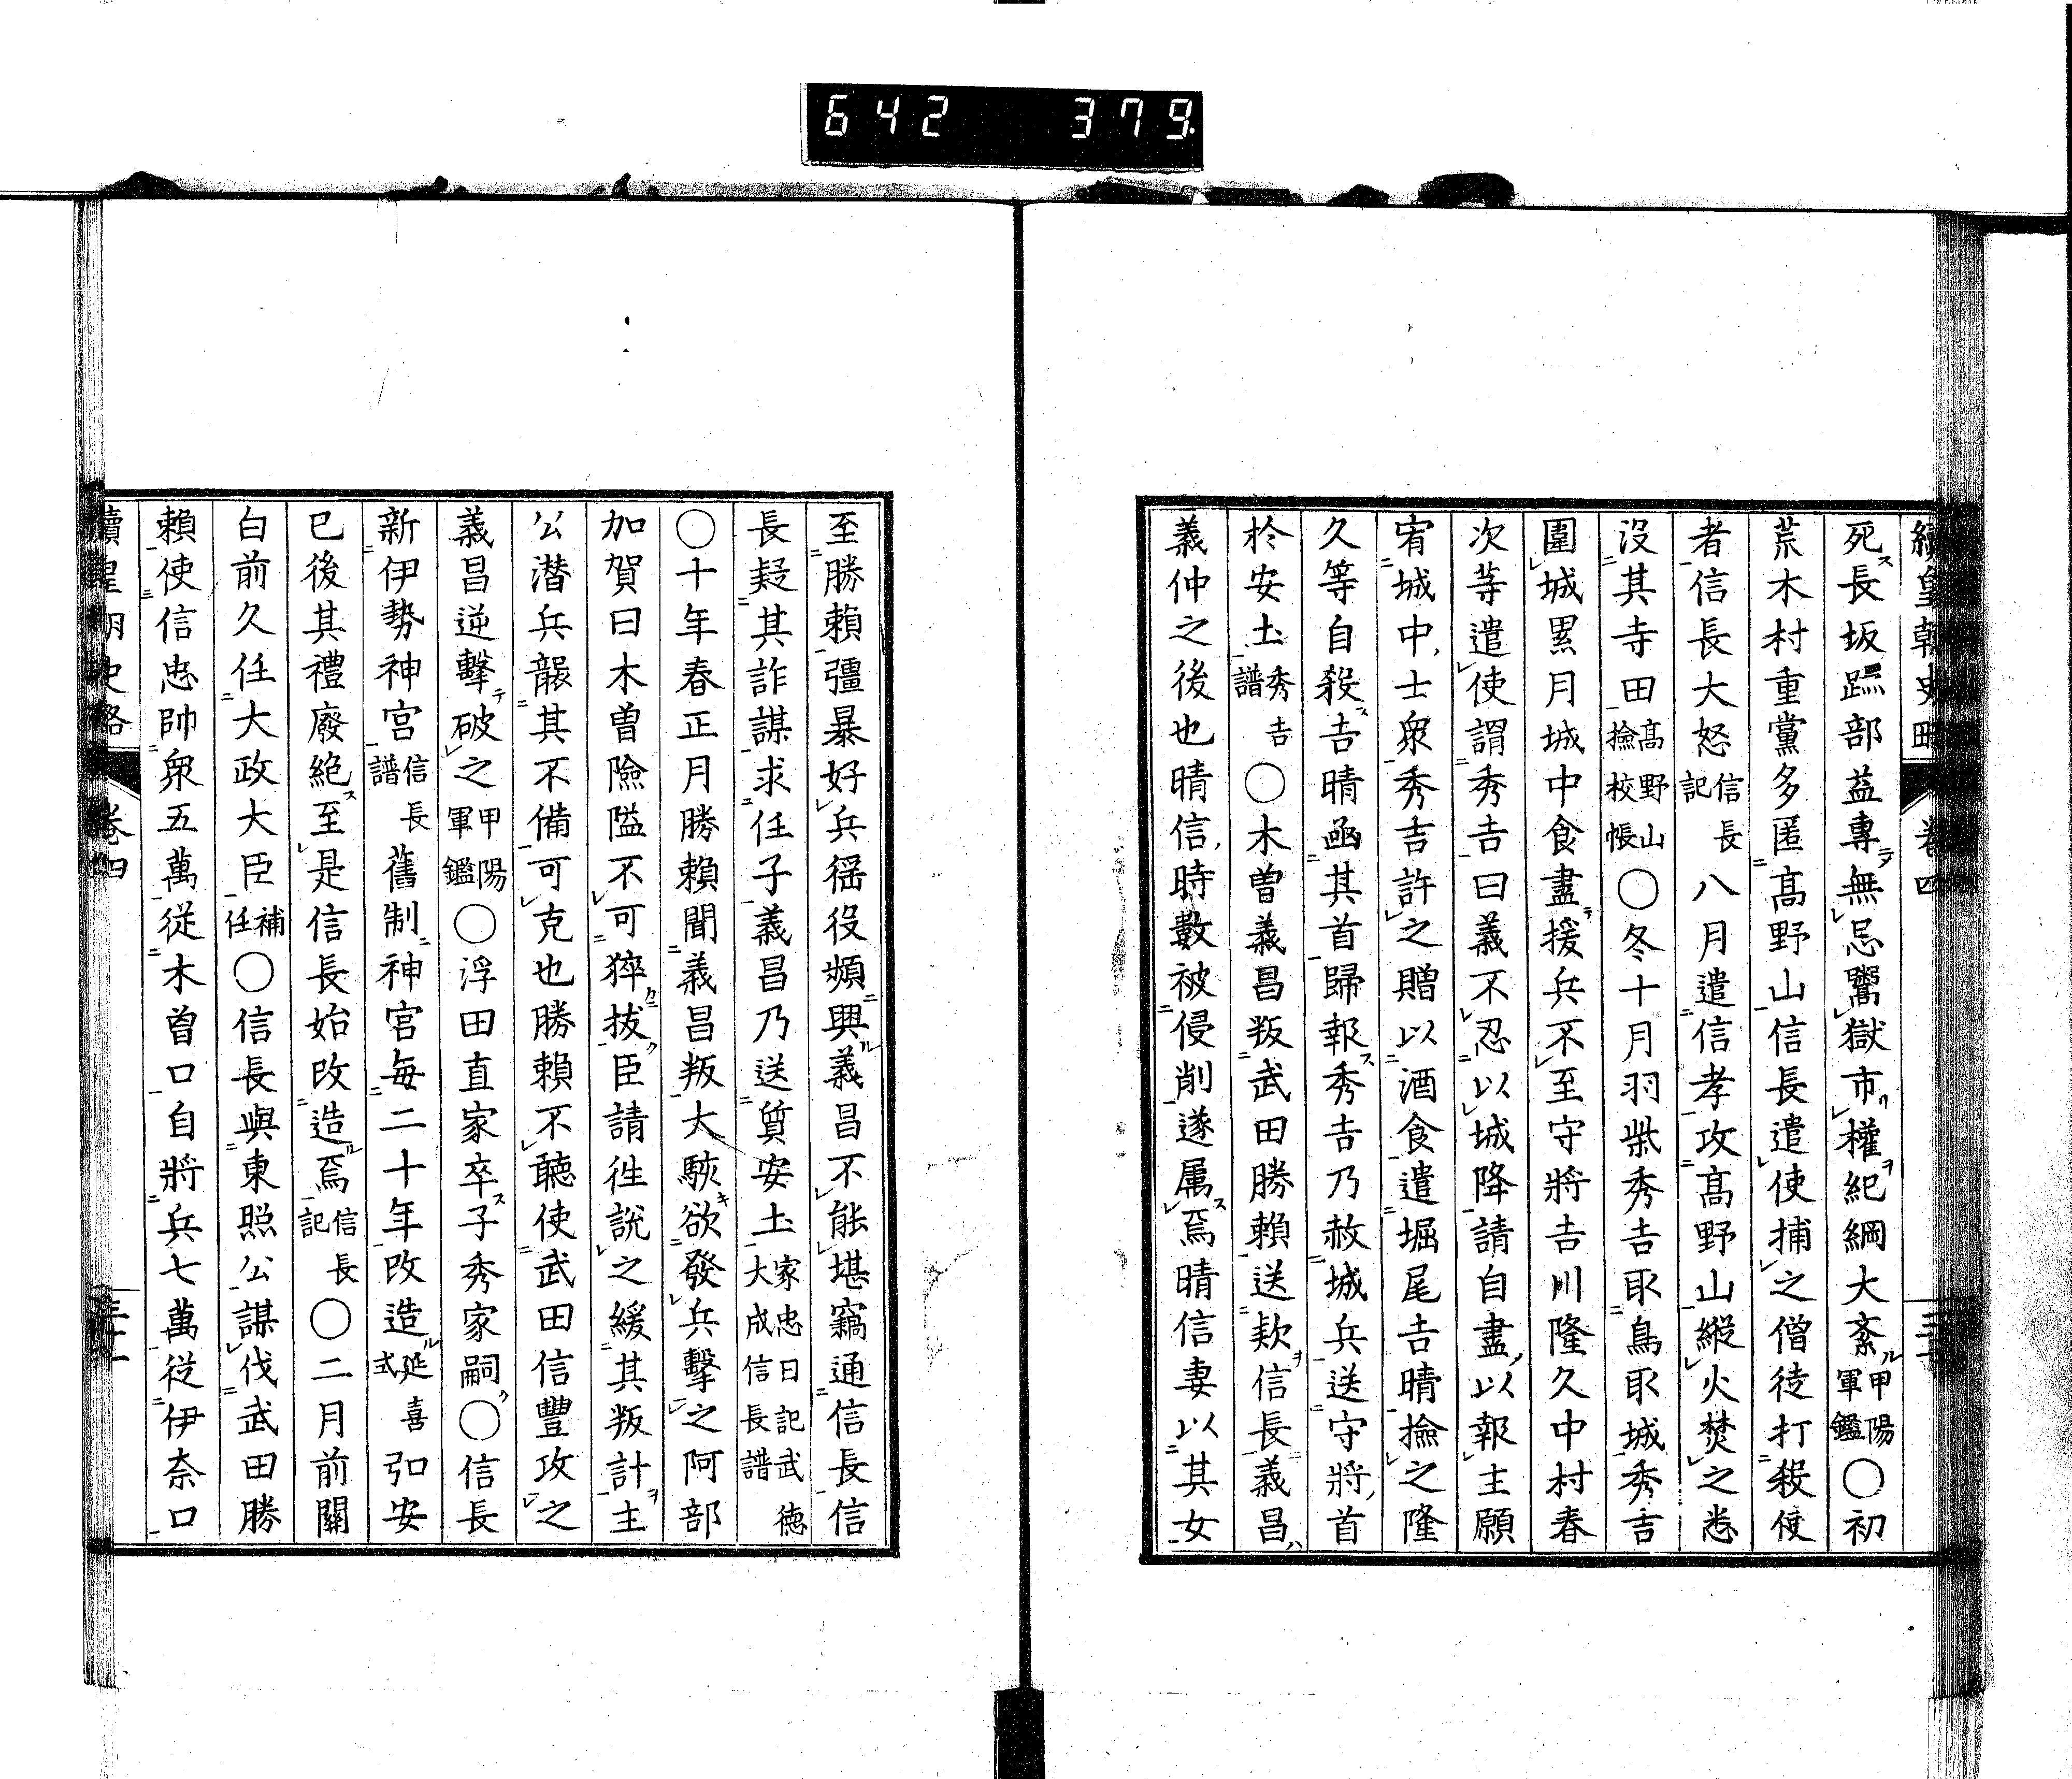 642 379
續皇朝史略 卷四
死長坂跡部益專無忌鬻獄市權紀綱大紊甲陽軍鑑〇初
荒木村重黨多匿髙野山信長遣使捕之僧徒打殺使
者信長大怒信長記八月遣信孝攻髙野山縱火焚之悉
沒其寺田髙野山撿校帳〇冬十月羽柴秀吉取鳥取城秀吉
圍城累月城中食盡援兵不至守將吉川隆久中村春
次等遣使謂秀吉曰義不忍以城降請自盡以報主願
宥城中士衆秀吉許之贈以酒食遣堀尾吉晴撿之隆
久等自殺吉晴函其首歸報秀吉乃赦城兵送守將首
於安土秀吉譜〇木曽義昌叛武田勝賴送款信長義昌
義仲之後也晴信時數被侵削遂属焉晴信妻以其女
至勝賴彊暴好兵徭役頻興義昌不能堪竊通信長信
長疑其詐謀求任子義昌乃送質安土家忠日記武德大成信長譜
〇十年春正月勝賴聞義昌叛大駭欲發兵擊之阿部
加賀曰木曽險隘不可猝拔臣請往說之緩其叛計主
公潜兵襲其不備可克也勝賴不聽使武田信豐攻之
義昌逆擊破之甲陽軍鑑〇浮田直家卒子秀家嗣〇信長
新伊勢神宮信長譜舊制神宮每二十年改造延喜式弘安
已後其禮廢絶至是信長始改造焉信長記〇二月前關
白前久任大政大臣補任〇信長與東照公謀伐武田勝
賴使信忠帥衆五萬從木曽口自將兵七萬從伊奈口
續皇朝史略 卷四